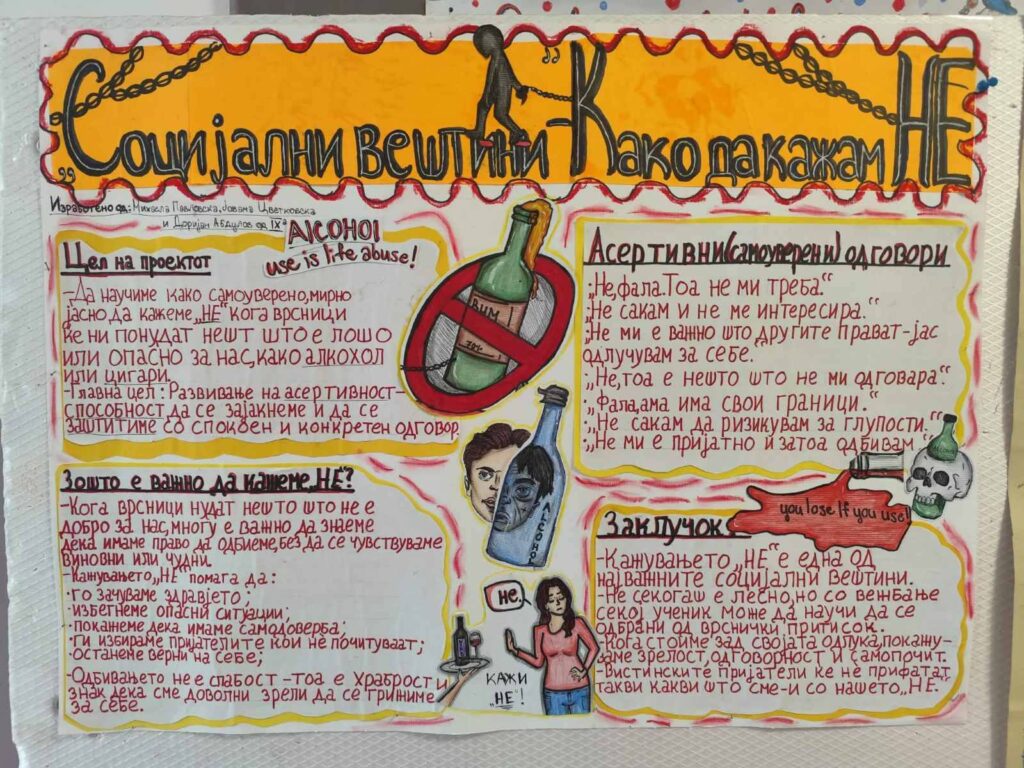 „Социјални вештини - Како да кажам НЕ“
Изработено од: Михаела Павловска, Јована Цветковска
и Доријан Абдулов од IXа
Alcohol
use is life abuse!
Цел на проектот
-Да научиме како самоуверено, мирно
јасно, да кажеме „НЕ“ кога врсници
ќе ни понудат нешт што е лошо
или опасно за нас, како алкохол
или цигари.
-Главна цел: Развивање на асертивност-
способност да се зајакнеме и да се
заштитиме со спокоен и конкретен одговор.
РУМ
70%
Асертивни (самоуверени) одговори
„Не, фала. Тоа не ми треба.“
„Не сакам и не ме интересира.“
„Не ми е важно што другите прават-јас
одлучувам за себе.
„Не, тоа е нешто што не ми одговара.“
„Фала, ама има свои граници.“
„Не сакам да ризикувам за глупости.“
„Не ми е пријатно и затоа одбивам“
Зошто е важно да кажеме „НЕ“?
-Кога врсници нудат нешто што не е
добро за нас, многу е важно да знаеме
дека имаме право да одбиеме, без да се чувствуваме
виновни или чудни.
-Кажувањето „НЕ“ помага да:
· го зачуваме здравјето;
· избегнеме опасни ситуации;
· покажеме дека имаме самодоверба;
· ги избираме пријателите кои не почитуваат;
· останеме верни на себе;
-Одбивањето не е слабост - тоа е храброст и
знак дека сме доволни зрели да се грижиме
за себе.
АЛСОНОЛ
не.
КАЖИ
„НЕ“!
you lose If you use!
Заклучок:
-Кажувањето „НЕ“ е една од
најважните социјални вештини.
-Не секогаш е лесно, но со вежбање
секој ученик може да научи да се
одбрани од врснички притисок.
-Кога стоиме зад својата одлука, покажу-
ваме зрелост, одговорност и самопочит.
-Вистинските пријатели ќе не прифатат
такви какви што сме-и со нашето „НЕ“.